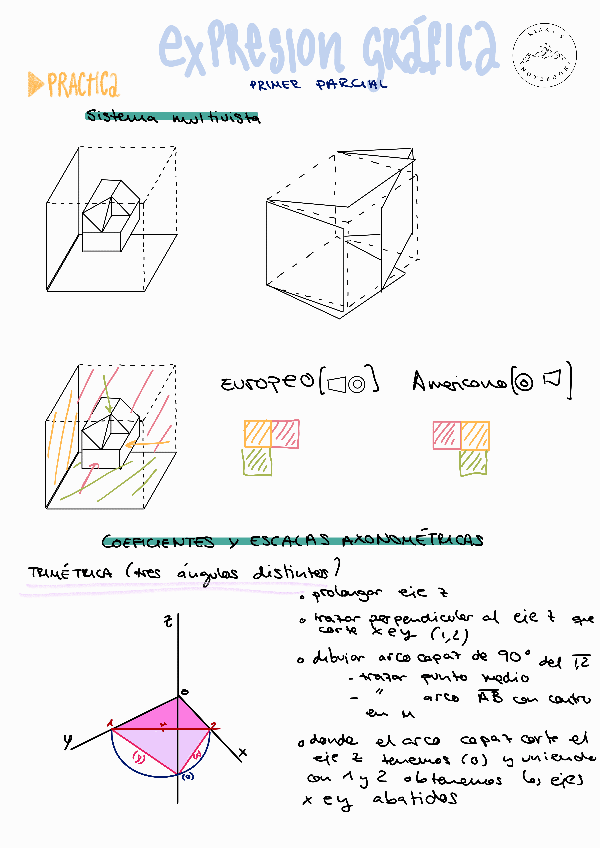 expresion gráfica
PRACTICA
PRIMER PARCIAL
Sistema multivista
EUROPEO
Americano
COEFICIENTES y ESCALAS AXONOMÉTRICAS
TRIMÉTRICA (tres ángulos distintos)
prolongar eje z
trazar perpendicular al eje z que
corte x e y (1,2)
dibujar arco capaz de 90° del 12
- trazar punto medio
- " arco AB con centro
en M
donde el arco capaz corte el
eje z tenemos (O) y uniendo
con 1 y 2 obtenemos los ejes
x e y abatidos
z
O
1
M
2
y
x
(y)
(x)
(O)